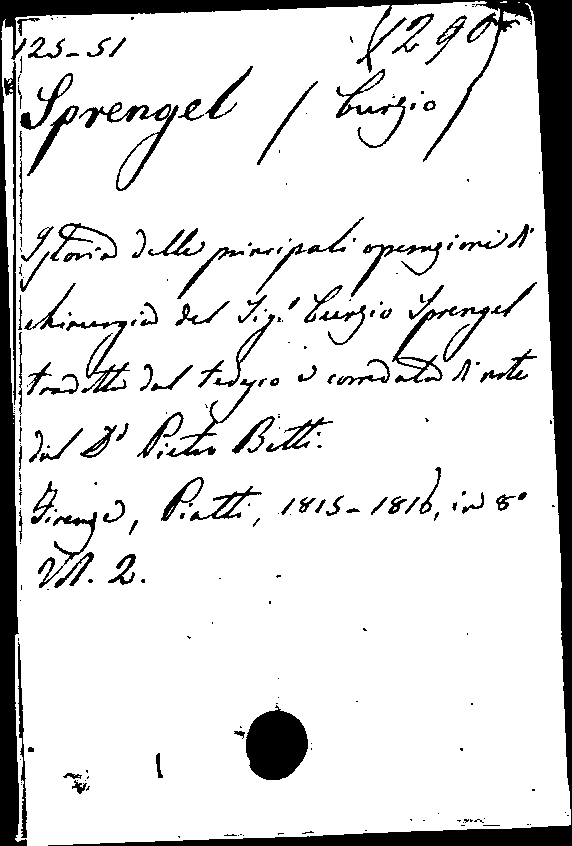 125-51 (1290)
Sprengel (Curzio)
Istoria delle principali operazioni di
chirurgia del Sig.r Curzio Sprengel
tradotta dal tedesco e corredata di note
dal Dr Pietro Betti.
Firenze, Piatti, 1815-1816, in 8°
Vol. 2.